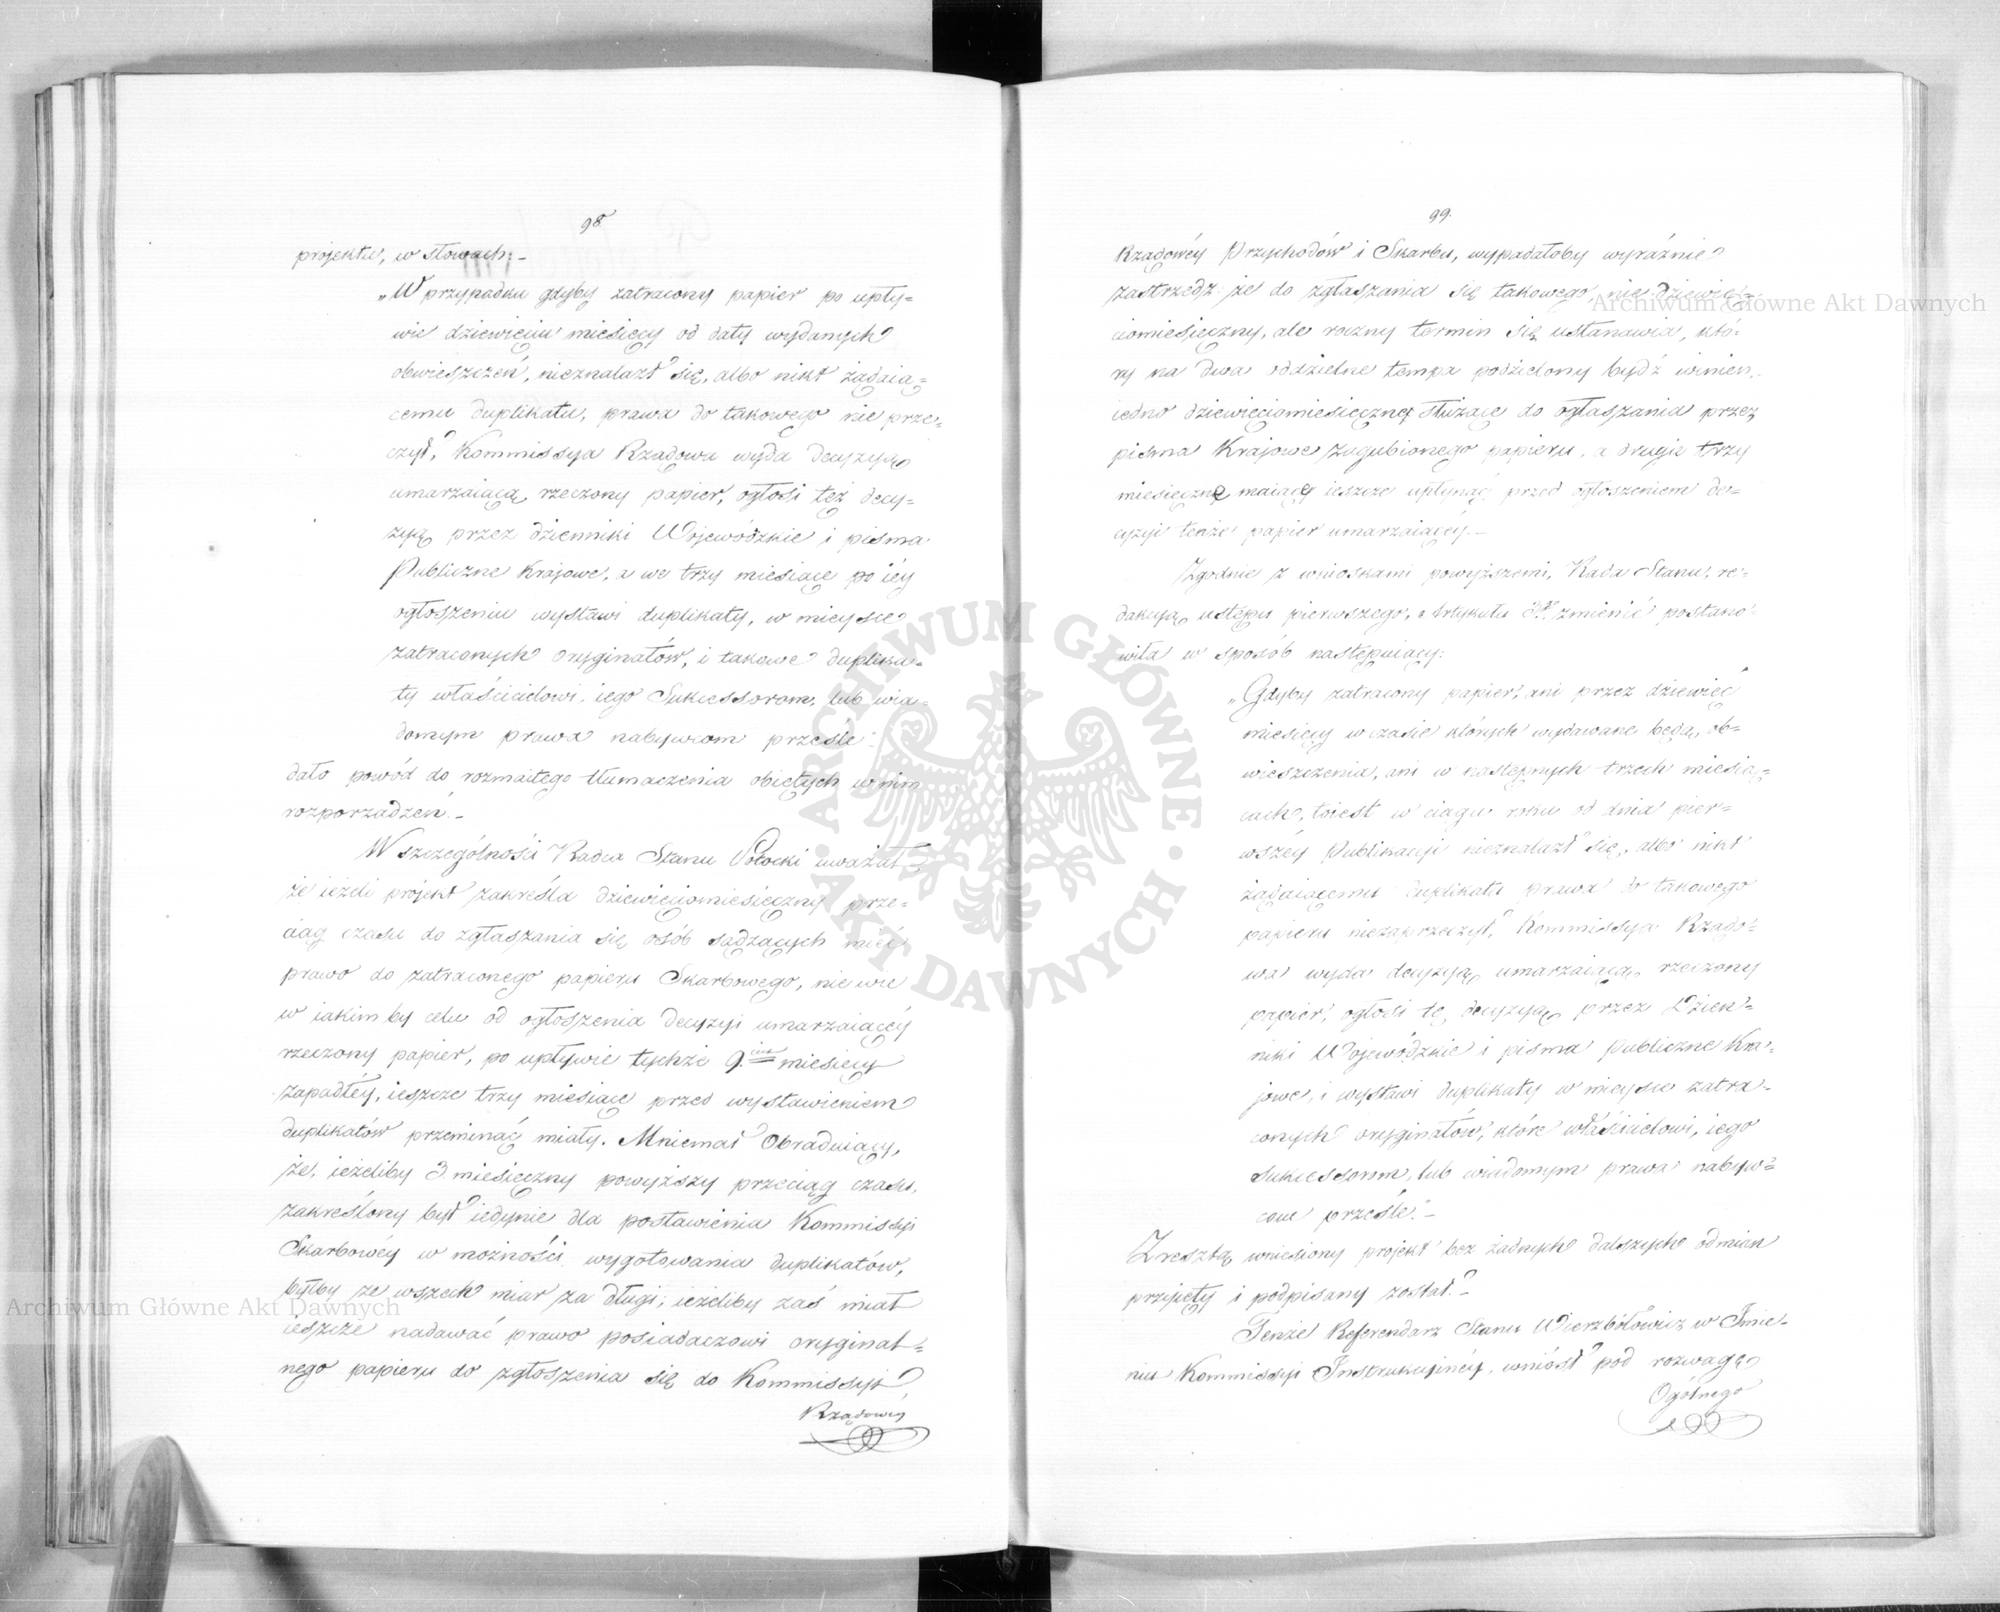 98.
projektu, w słowach: –
„W przypadku gdyby zatracony papier po upły=
wie dziewięciu miesięcy od daty wydanych
obwieszczeń, nieznalazł się, albo nikt żądaią=
cemu duplikatu, prawa do takowego nie prze=
czył, Kommissya Rządowa wyda decyzyą
umarzaiącą rzeczony papier, ogłosi też decy=
zyą przez dzienniki Wojewódzkie i pisma
Publiczne Krajowe, a we trzy miesiące po iéy
ogłoszeniu wystawi duplikaty, w mieysce
zatraconych oryginałów, i takowe duplika=
ty właścicielowi, iego Sukcessorom, lub wia=
domym prawa nabywcom prześle."
dało powód do rozmaitego tłumaczenia obiętych w nim
rozporządzeń. –
W szczególności Radca Stanu Potocki uważał,
że ieżeli projekt zakreśla dziewięciomiesięczny prze=
ciąg czasu do zgłaszania się osób sądzących mieć
prawo do zatraconego papieru Skarbowego, nie wie
w iakim by celu od ogłoszenia decyzyi umarzaiącéy
rzeczony papier, po upływie tychże 9.ciu miesięcy
zapadłéy, ieszcze trzy miesiące przed wystawieniem
duplikatów przeminąć miały. Mniemał Obraduiący,
że, ieżeliby 3 miesięczny powyższy przeciąg czasu,
zakreślony był iedynie dla postawienia Kommissyi
Skarbowéy w możności wygotowania duplikatów,
byłby ze wszech miar za długi; ieżeliby zaś miał
ieszcze nadawać prawo posiadaczowi oryginal=
nego papieru do zgłoszenia się do Kommissyi
Rządowéy
99.
Rządowéy Przychodów i Skarbu, wypadałoby wyraźnie
zastrzedz: że do zgłaszania się takowego, nie dziewię=
ciomiesięczny, ale roczny termin się ustanawia, któ=
ry na dwa oddzielne tempa podzielony bydź winien,
iedno dziewięciomiesięczne służące do ogłaszania przez
pisma Krajowe zagubionego papieru, a drugie trzy
miesięczne maiące ieszcze upłynąć przed ogłoszeniem de=
cyzyi tenże papier umarzaiącéy. –
Zgodnie z wnioskami powyższemi, Rada Stanu, re=
dakcyą ustępu pierwszego, Artykułu zmienić postano
wiła w sposób następuiący:
„Gdyby zatracony papier, ani przez dziewięć
miesięcy w czasie których wydawane będą, ob=
wieszczenia, ani w następnych trzech miesią=
cach, toiest w ciągu roku od dnia pier=
wszéy Publikacyi nieznalazł się, albo nikt
żądaiącemu duplikatu prawa do takowego
papieru niezaprzeczył, Kommissya Rządo=
wa wyda decyzyą umarzaiącą, rzeczony
papier, ogłosi tę decyzyą przez Dzien=
niki Wojewódzkie i pisma Publiczne Kra=
jowe, i wystawi duplikaty w mieysce zatra=
conych oryginałów, które właścicielowi, iego
sukcessorom, lub wiadomym prawa nabyw=
com prześle." –
Zresztą wniesiony projekt bez żadnych dalszych odmian
przyięty i podpisany został. –
Tenże Referendarz Stanu Wierzbołowicz w Imie=
niu Kommissyi Instrukcyinéy, wniósł pod rozwagę
Ogólnego
Archiwum Główne Akt Dawnych
Archiwum Główne Akt Dawnych
ARCHIWUM GŁÓWNE AKT DAWNYCH